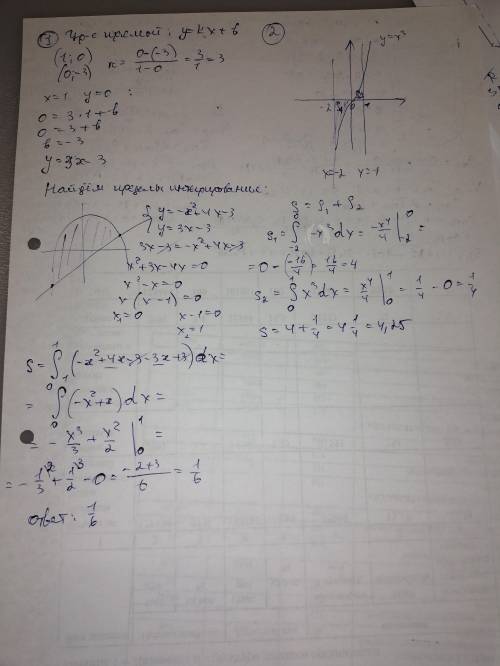 ① Ур-е прямой: y=kx+b
(1;0)
(0;-3)
k = 0-(-3)/1-0 = 3/1 = 3
x=1 y=0 :
0=3·1+b
0=3+b
b=-3
y=3x-3
Найдём пределы интегрирования:
{ y=-x²+4x-3
y=3x-3
3x-3=-x²+4x-3
x²+3x-4x=0
x²-x=0
x(x-1)=0
x₁=0 x-1=0
x₂=1
S=∫₀¹(-x²+4x-3-3x+3)dx=
=∫₀¹(-x²+x)dx=
= -x³/3 + x²/2 |₀¹ =
= -1/3 + 1/2 - 0 = -2+3/6 = 1/6
ответ: 1/6
②
y=x³
-2 S₁ 0 S₂ 1
x=-2 x=1
S=S₁+S₂
S₁=∫₋₂⁰ -x³dx = -x⁴/4 |₋₂⁰ =
=0-(-16/4)=16/4=4
S₂=∫₀¹ x³dx = x⁴/4 |₀¹ = 1/4 - 0 = 1/4
S=4+1/4=4 1/4=4,25